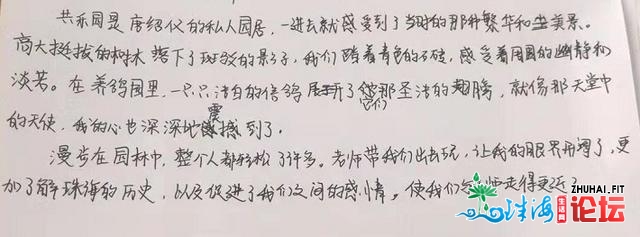 共乐园是唐绍仪的私人园居，一进去就感受到了当时的那种繁华和美景。
高大挺拔的树木落下了斑驳的影子，我们踏着青色的石砖，感受着周围的幽静和
淡苦。在养鸽园里，一只只洁白的信鸽展开了它们那圣洁的翅膀，就像那天堂中
的天使，我的心也深深地震撼到了。
漫步在园林中，整个人都轻松了许多。老师带我们出去玩，让我的眼界开阔了，更
加了解珠海的历史，以及促进了我们之间的感情。使我们走得更近了
ZHUHAI.FIT
珠海生活网论坛